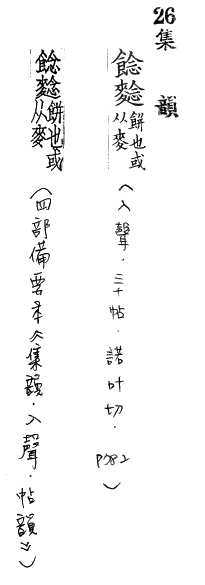 26
集韻
餄䴴 餅也或从麥
(入聲.三十帖.諾叶切. P782)
餄䴴 餅也或从麥
(四部備要本《集韻.入聲.帖韻》)